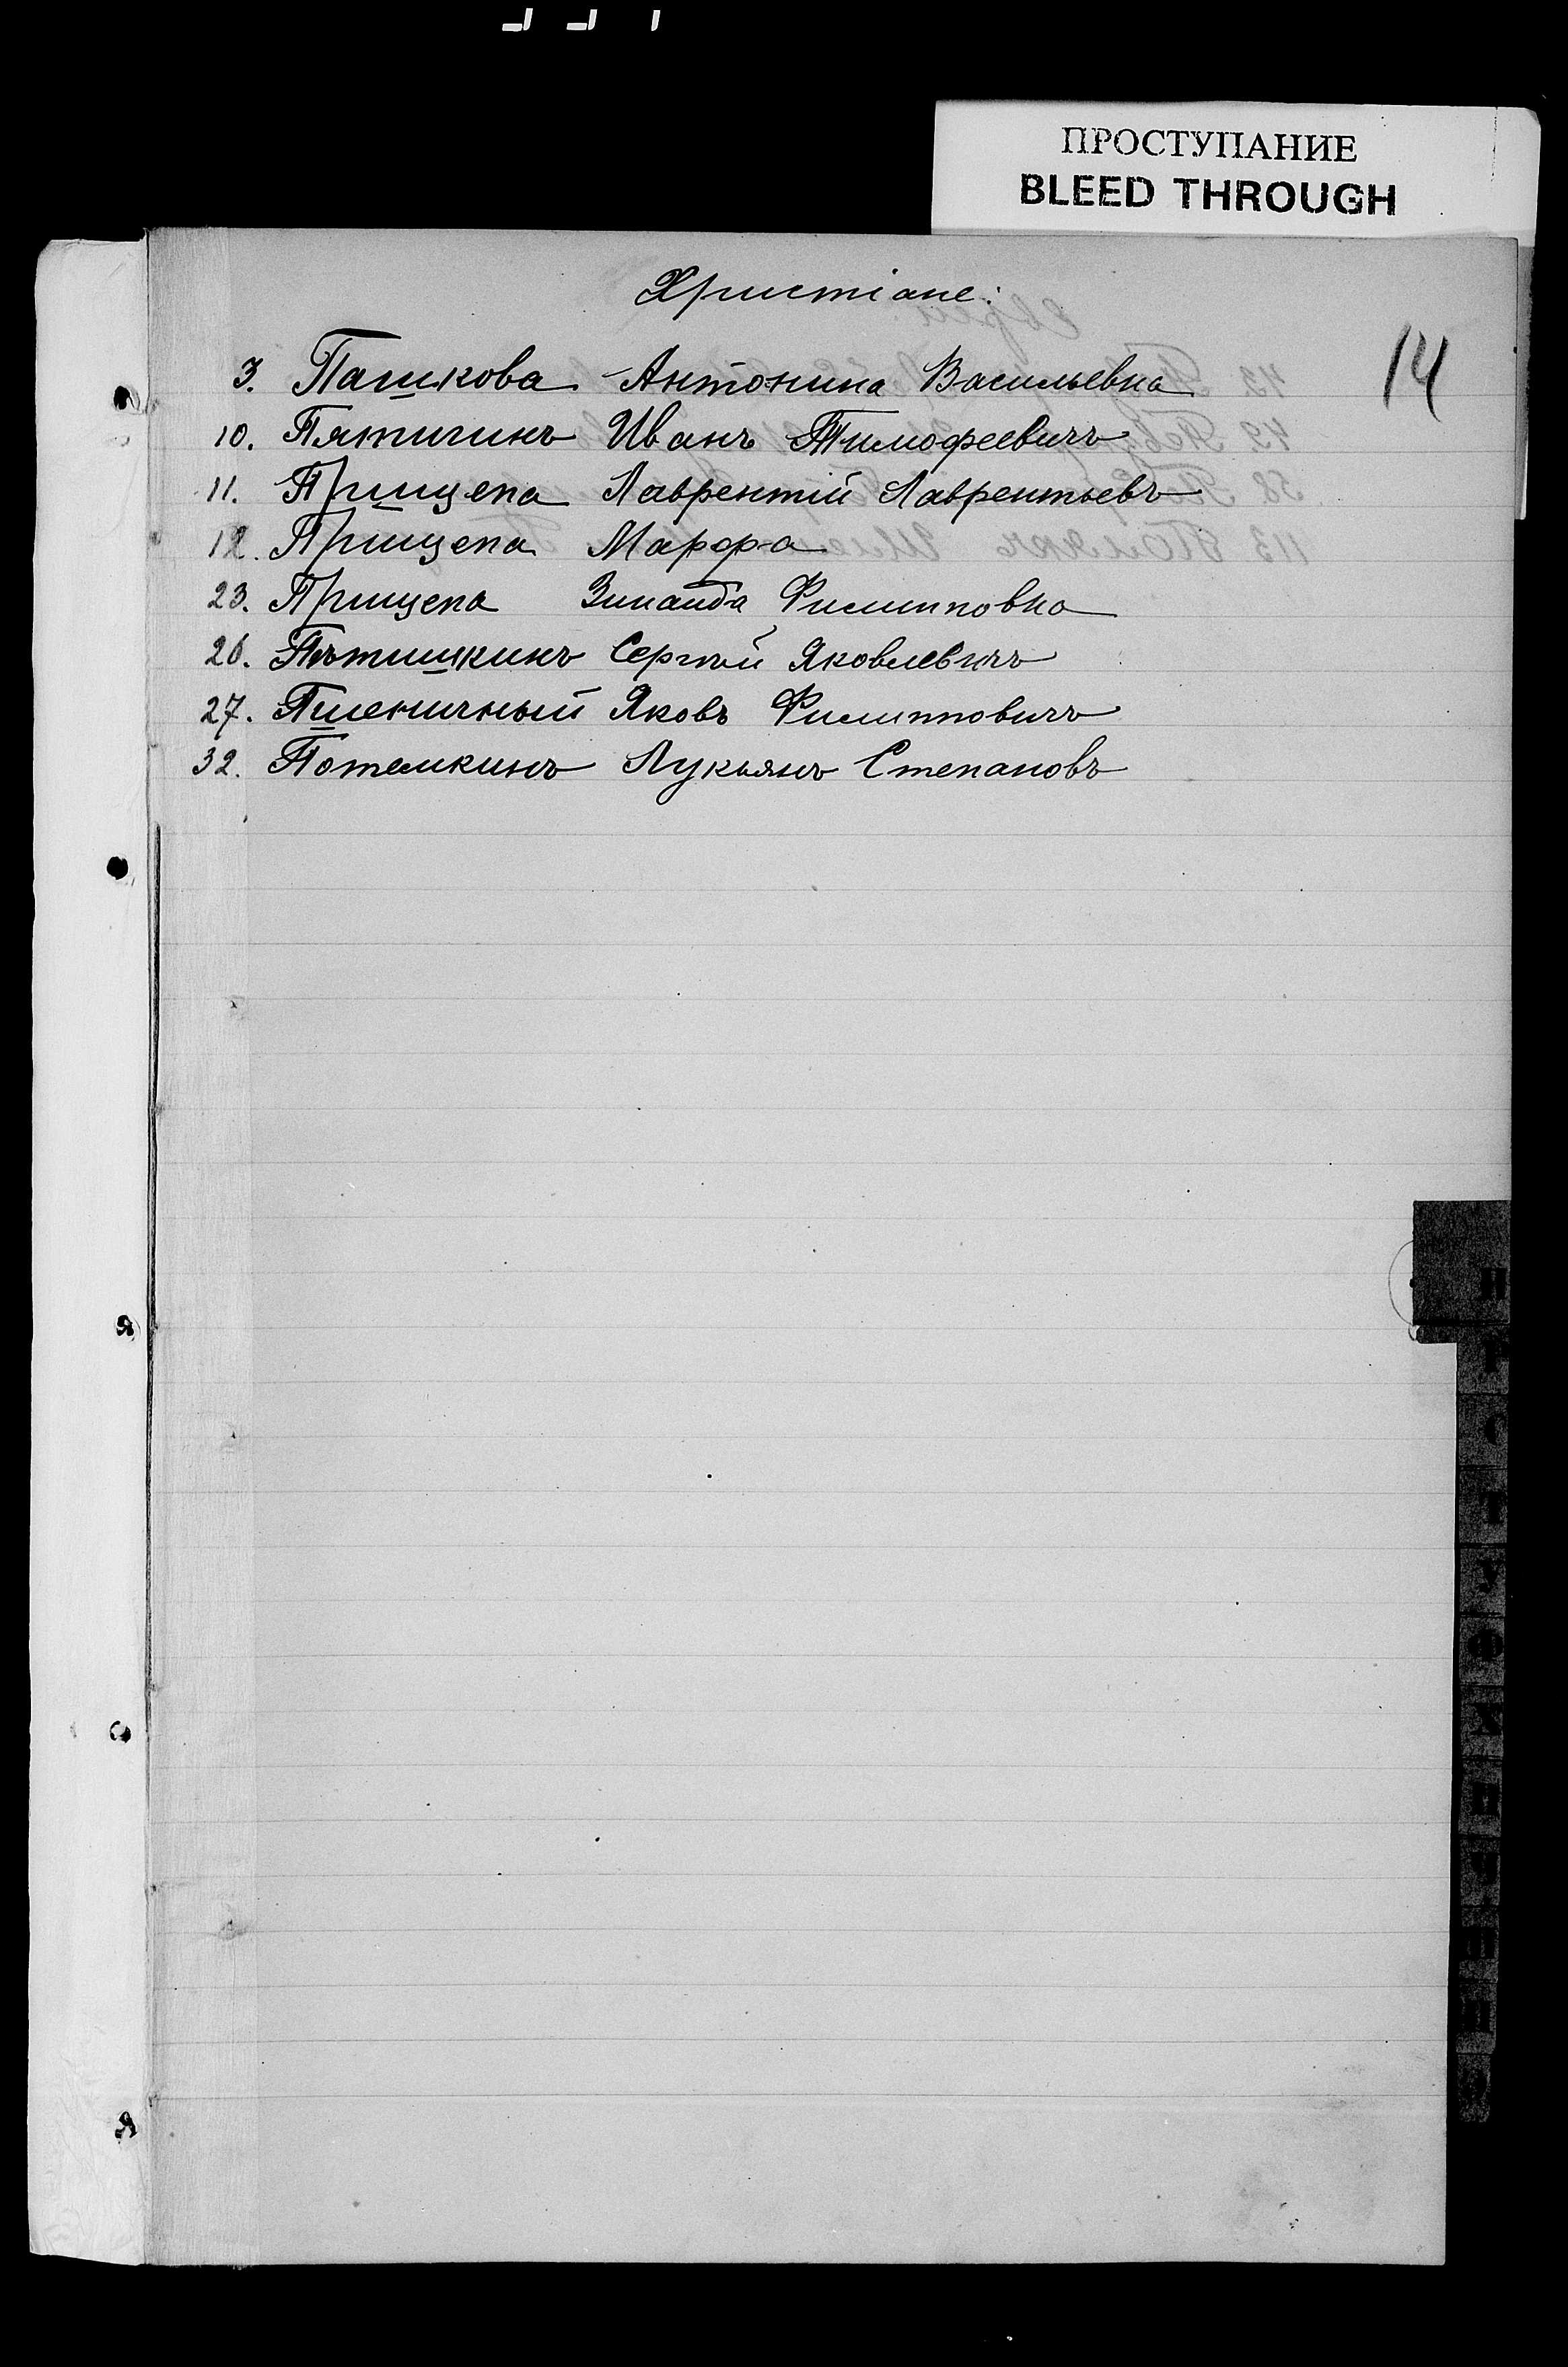 ПРОСТУПАНИЕ
BLEED THROUGH
Христіане:
14
3. Пашкова Антонина Васильевна
10. Пятигинъ Иванъ Тимофеевичъ
11. Прищепа Лаврентій Лаврентьевъ
12. Прищепа Марфа
23. Прищепа Зинаида Филипповна
26. Пѣтишкинъ Сергѣй Яковлевичъ
27. Пшеничный Яковъ Филипповичъ
32. Потемкинъ Лукьянъ Степановъ